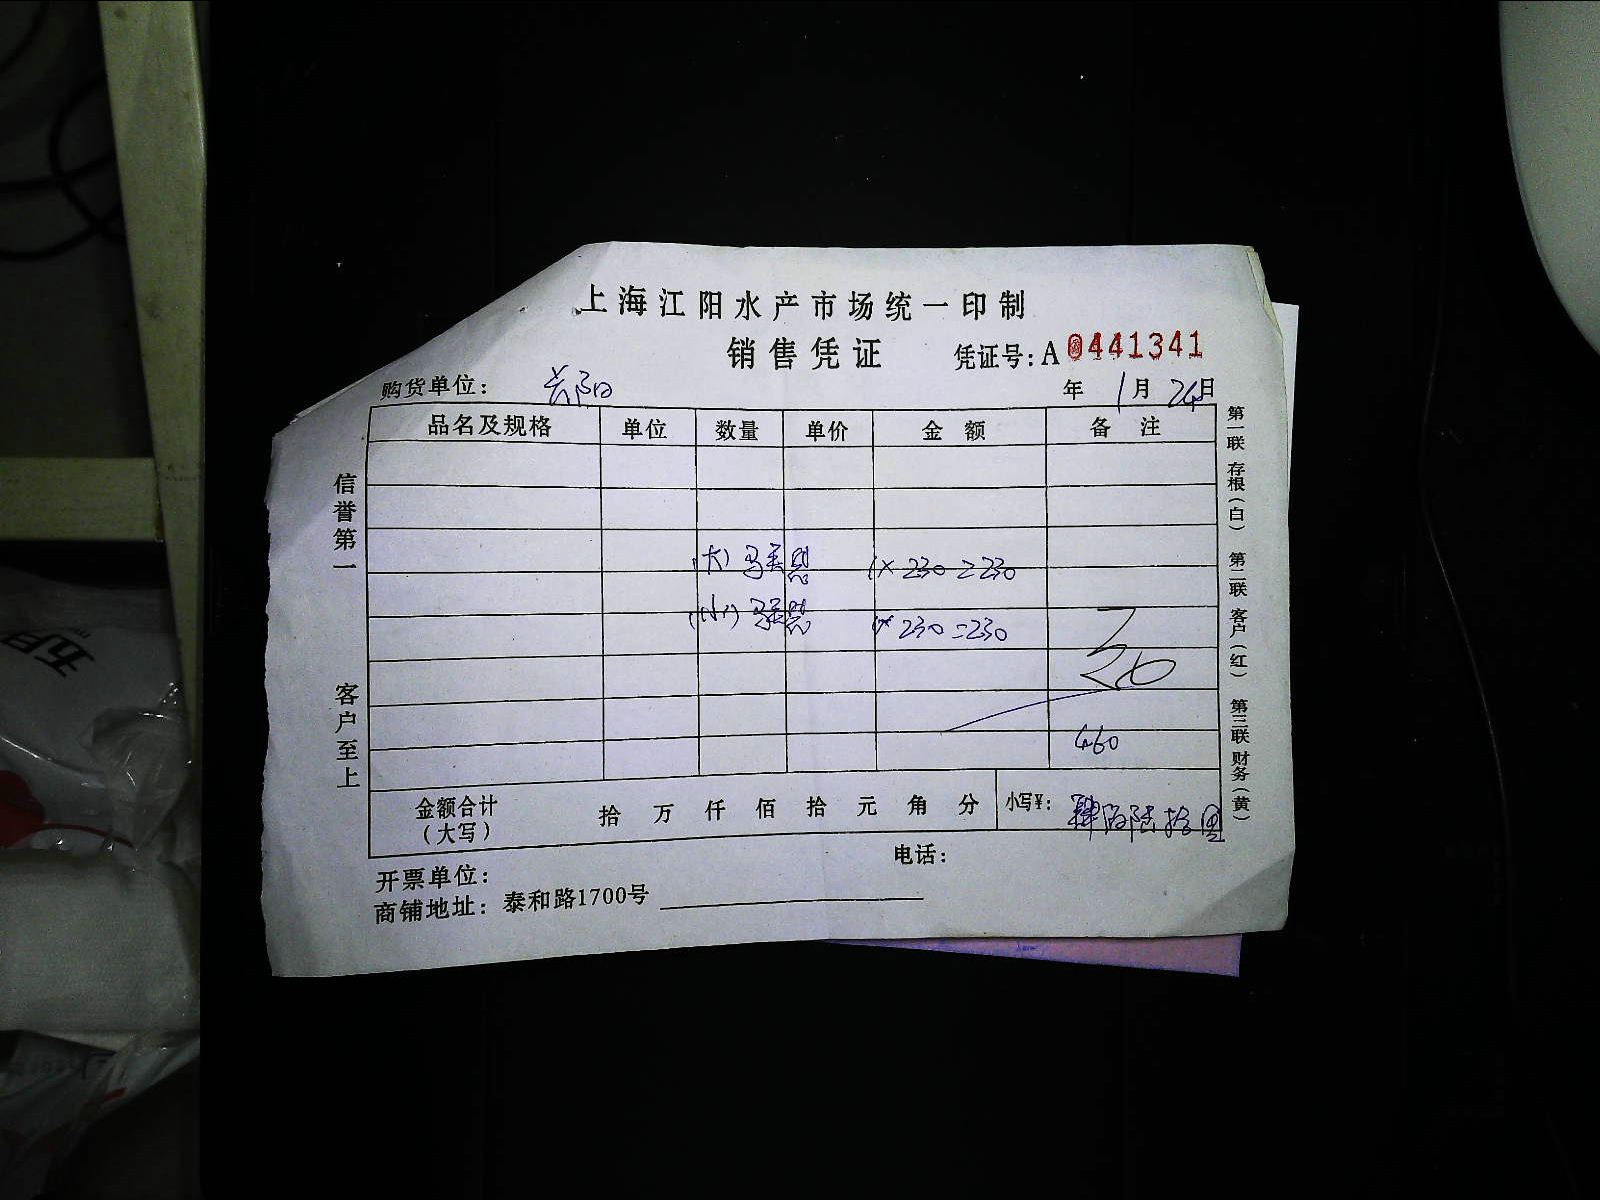 上海江阳水产市场统一印制
销售凭证 凭证号: A 0441341
购货单位: 年 1月 24日
品名及规格 单位 数量 单价 金额 备注
(大) 1× 230 = 230
(小) 1× 230 = 230
460
金额合计(大写) 拾 万 仟 佰 拾 元 角 分 小写¥: 肆佰陆拾圆
电话:
开票单位:
商铺地址: 泰和路1700号
信誉第一
客户至上
第一联 存根(白) 第二联 客户(红) 第三联 财务(黄)
五月